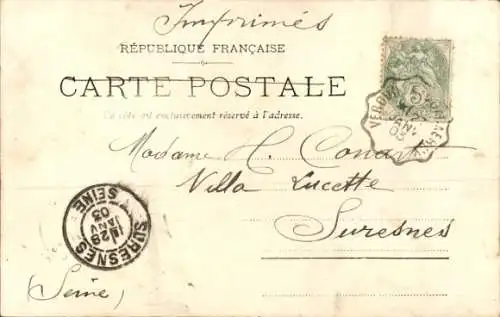 Imprimés
RÉPUBLIQUE FRANÇAISE
CARTE POSTALE
Ce côté est exclusivement réservé à l'adresse.
5
Madame H. Conart
Villa Lucette
Suresnes
SURESNES
SEINE
28
JANV
03
(Seine)